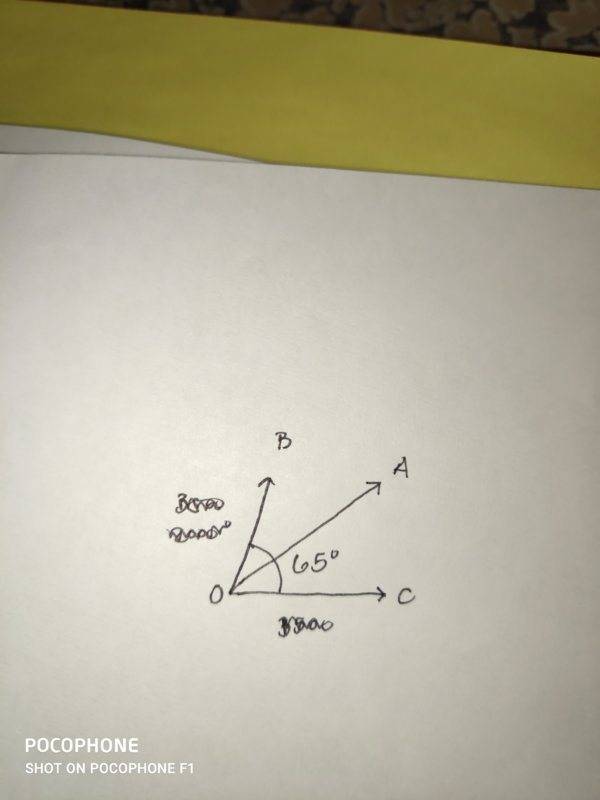 B
A
65°
O
C
POCOPHONE
SHOT ON POCOPHONE F1